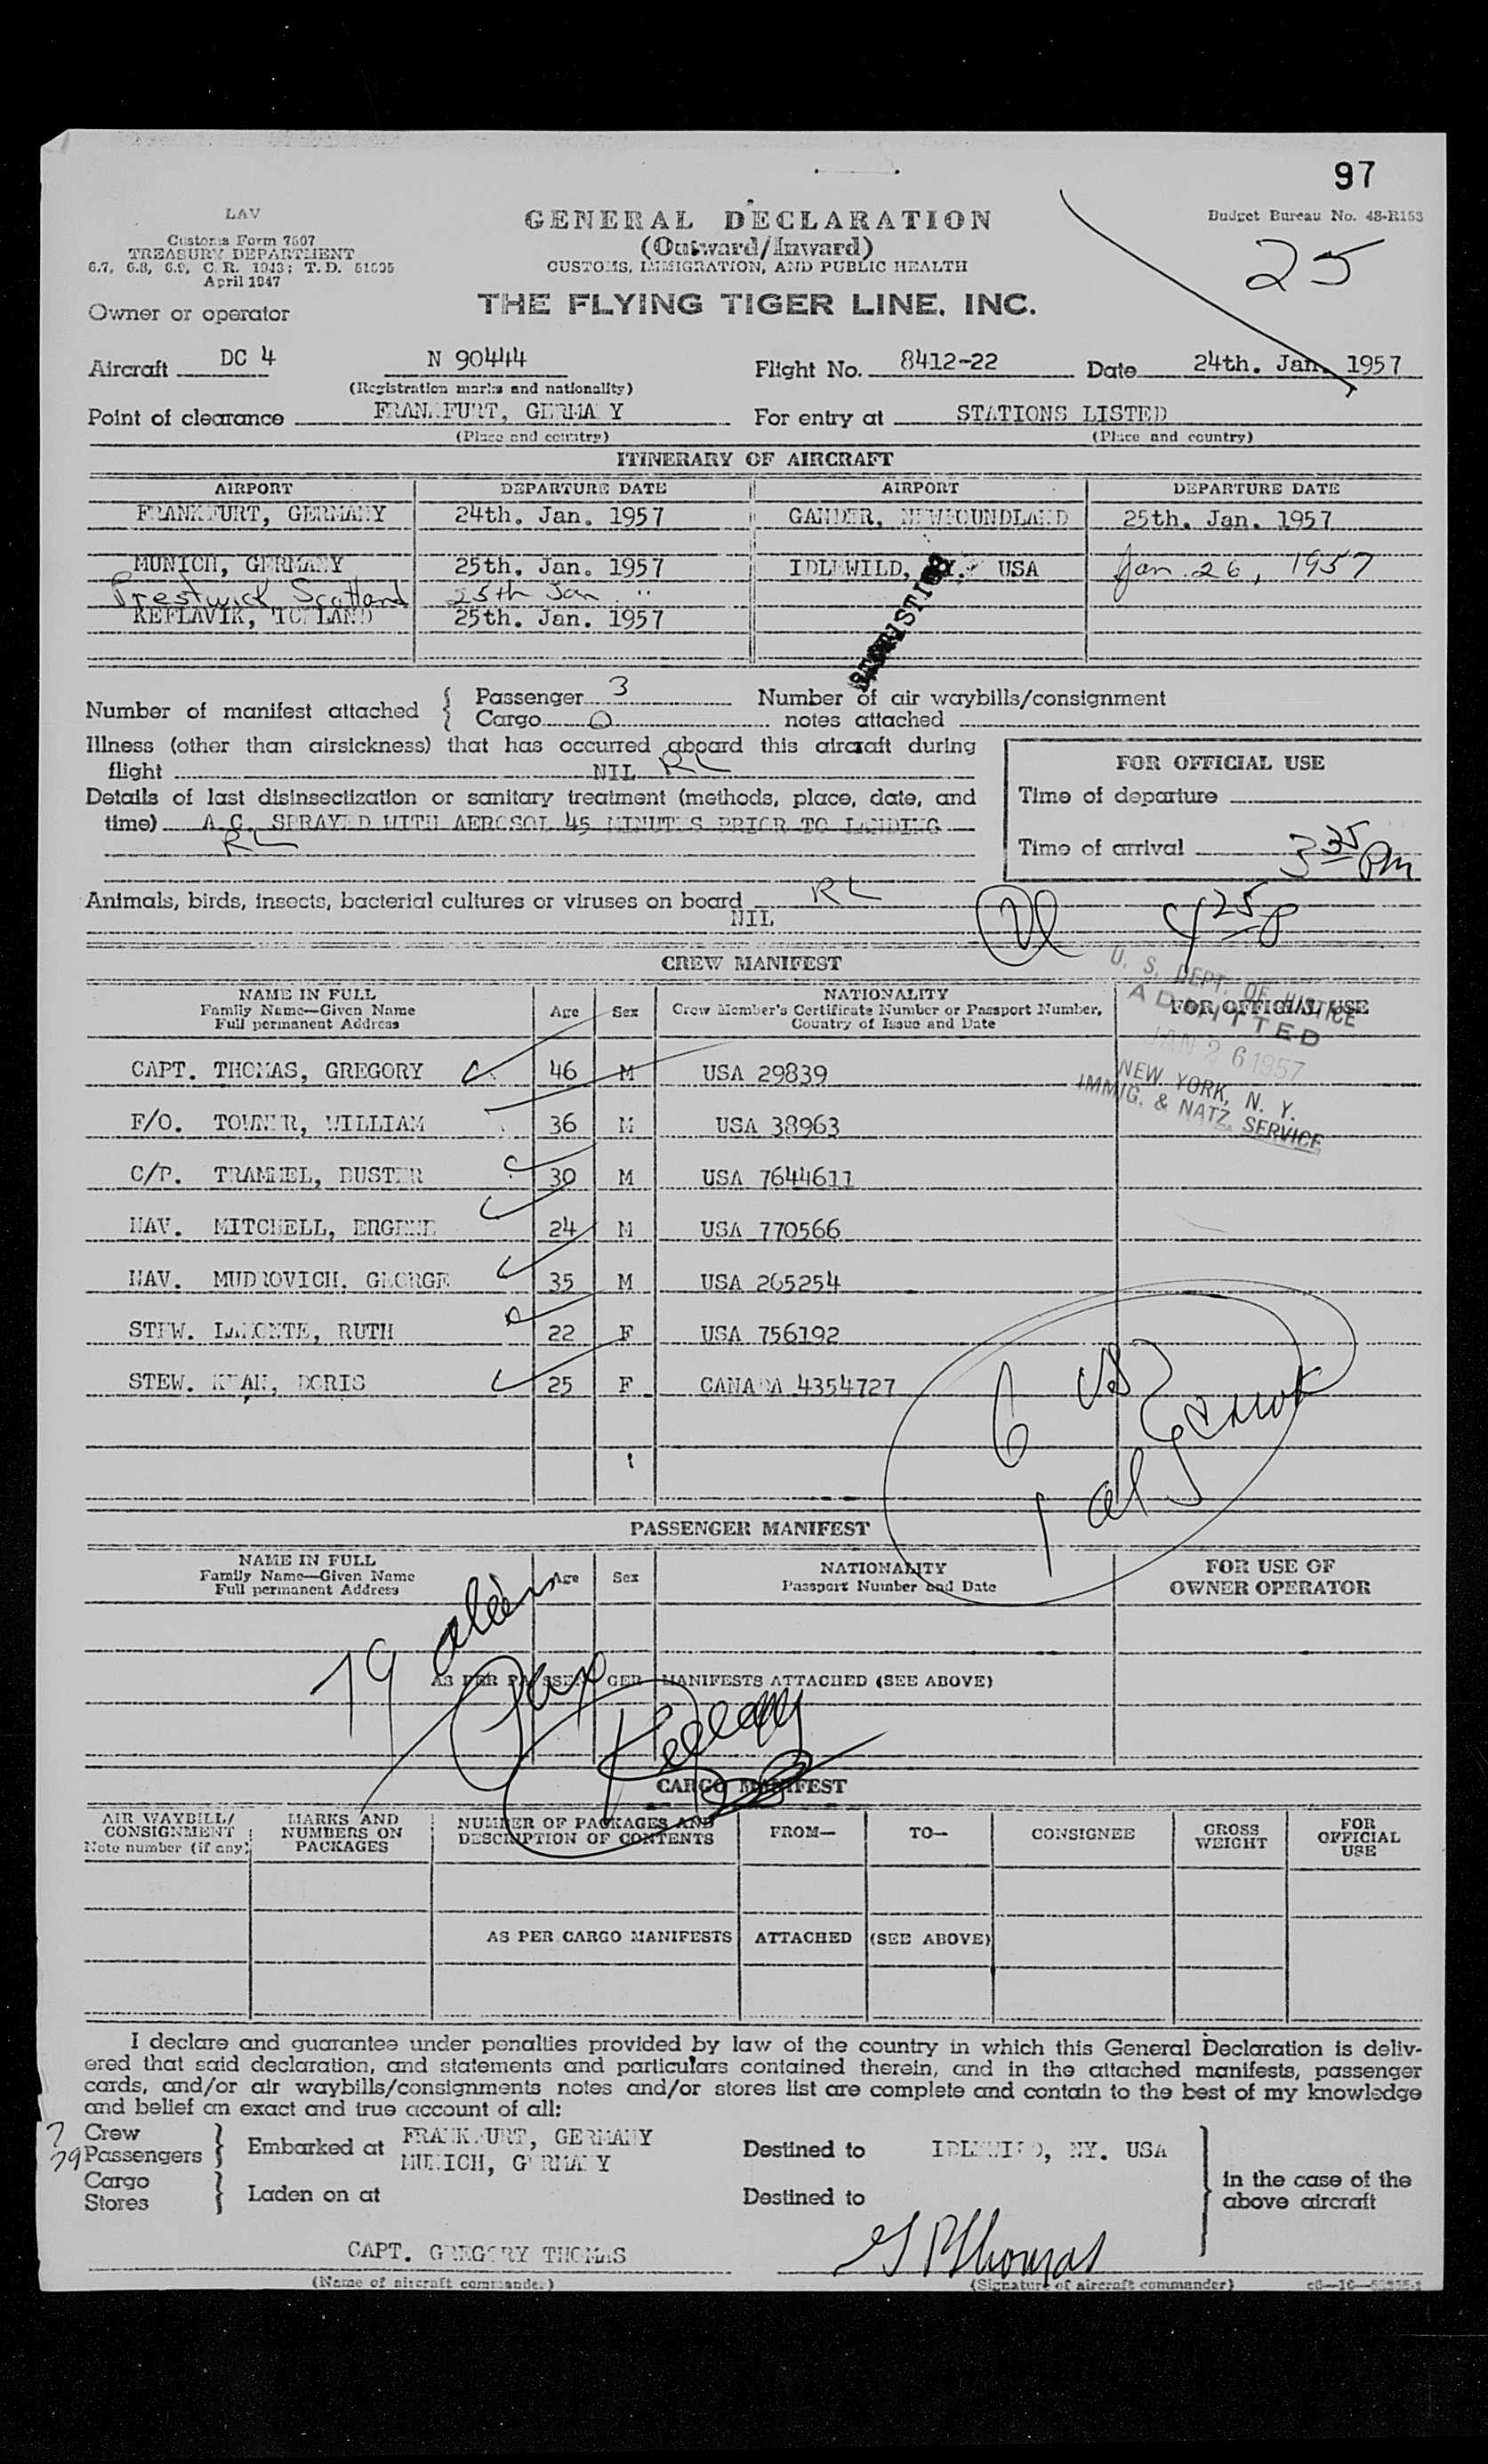 97
LAV
Customs Form 7507
TREASURY DEPARTMENT
6.7, 6.8, 6.9, C. R. 1943; T. D. 51635
April 1947
GENERAL DECLARATION
(Outward/Inward)
CUSTOMS, IMMIGRATION, AND PUBLIC HEALTH
THE FLYING TIGER LINE, INC.
Budget Bureau No. 48-R153
25
Owner or operator
Aircraft DC 4 N 90444 Flight No. 8412-22 Date 24th. Jan. 1957
(Registration marks and nationality)
Point of clearance FRANKFURT, GERMANY For entry at STATIONS LISTED
(Place and country) (Place and country)
ITINERARY OF AIRCRAFT
AIRPORT DEPARTURE DATE AIRPORT DEPARTURE DATE
FRANKFURT, GERMANY 24th. Jan. 1957 GANDER, NEWFOUNDLAND 25th. Jan. 1957
MUNICH, GERMANY 25th. Jan. 1957 IDLEWILD, USA Jan. 26, 1957
Prestwick Scotland 25th Jan. "
KEFLAVIK, ICELAND 25th. Jan. 1957
Number of manifest attached { Passenger 3 Number of air waybills/consignment
Cargo O notes attached
Illness (other than airsickness) that has occurred aboard this aircraft during
flight NIL RL
Details of last disinsectization or sanitary treatment (methods, place, date, and
time) A.C. SPRAYED WITH AEROSOL 45 MINUTES PRIOR TO LANDING
RL
FOR OFFICIAL USE
Time of departure
Time of arrival 3 35 Pm
Animals, birds, insects, bacterial cultures or viruses on board RL
NIL
4 25 P
CREW MANIFEST
NAME IN FULL
Family Name—Given Name
Full permanent Address
Age Sex
NATIONALITY
Crew Member's Certificate Number or Passport Number,
Country of Issue and Date
FOR OFFICIAL USE
U. S. DEPT. OF JUSTICE
ADMITTED
JAN 26 1957
NEW YORK, N. Y.
IMMIG. & NATZ. SERVICE
CAPT. THOMAS, GREGORY 46 M USA 29839
F/O. TOWNER, WILLIAM 36 M USA 38963
C/P. TRAMMEL, BUSTER 30 M USA 7644611
NAV. MITCHELL, 24 M USA 770566
NAV. MUDROVICH. GEORGE 35 M USA 265254
STEW. LAMONTE, RUTH 22 F USA 756192
STEW. DORIS 25 F CANADA 4354727
6 US
1 al
PASSENGER MANIFEST
NAME IN FULL
Family Name—Given Name
Full permanent Address
Age Sex
NATIONALITY
Passport Number and Date
FOR USE OF
OWNER OPERATOR
79 aliens
AS PER PASSENGER MANIFESTS ATTACHED (SEE ABOVE)
CARGO MANIFEST
AIR WAYBILL/
CONSIGNMENT
Note number (if any)
MARKS AND
NUMBERS ON
PACKAGES
NUMBER OF PACKAGES AND
DESCRIPTION OF CONTENTS
FROM— TO— CONSIGNEE
GROSS
WEIGHT
FOR
OFFICIAL
USE
AS PER CARGO MANIFESTS ATTACHED (SEE ABOVE)
I declare and guarantee under penalties provided by law of the country in which this General Declaration is deliv-
ered that said declaration, and statements and particulars contained therein, and in the attached manifests, passenger
cards, and/or air waybills/consignments notes and/or stores list are complete and contain to the best of my knowledge
and belief an exact and true account of all:
7 Crew
79 Passengers } Embarked at FRANKFURT, GERMANY
MUNICH, GERMANY
Destined to IDLEWILD, NY. USA
Cargo
Stores } Laden on at Destined to
in the case of the
above aircraft
CAPT. GREGORY THOMAS G P Thomas
(Name of aircraft commander) (Signature of aircraft commander)